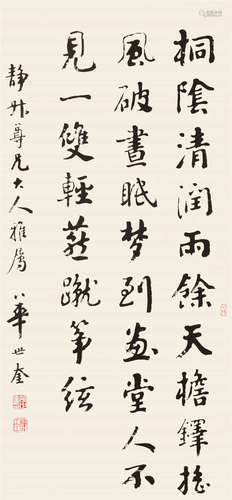 桐陰清润雨餘天檐鐸摇
風破晝眠梦到画堂人不
見一雙輕燕蹴筝弦
静妹尊兄大人雅属 華世奎